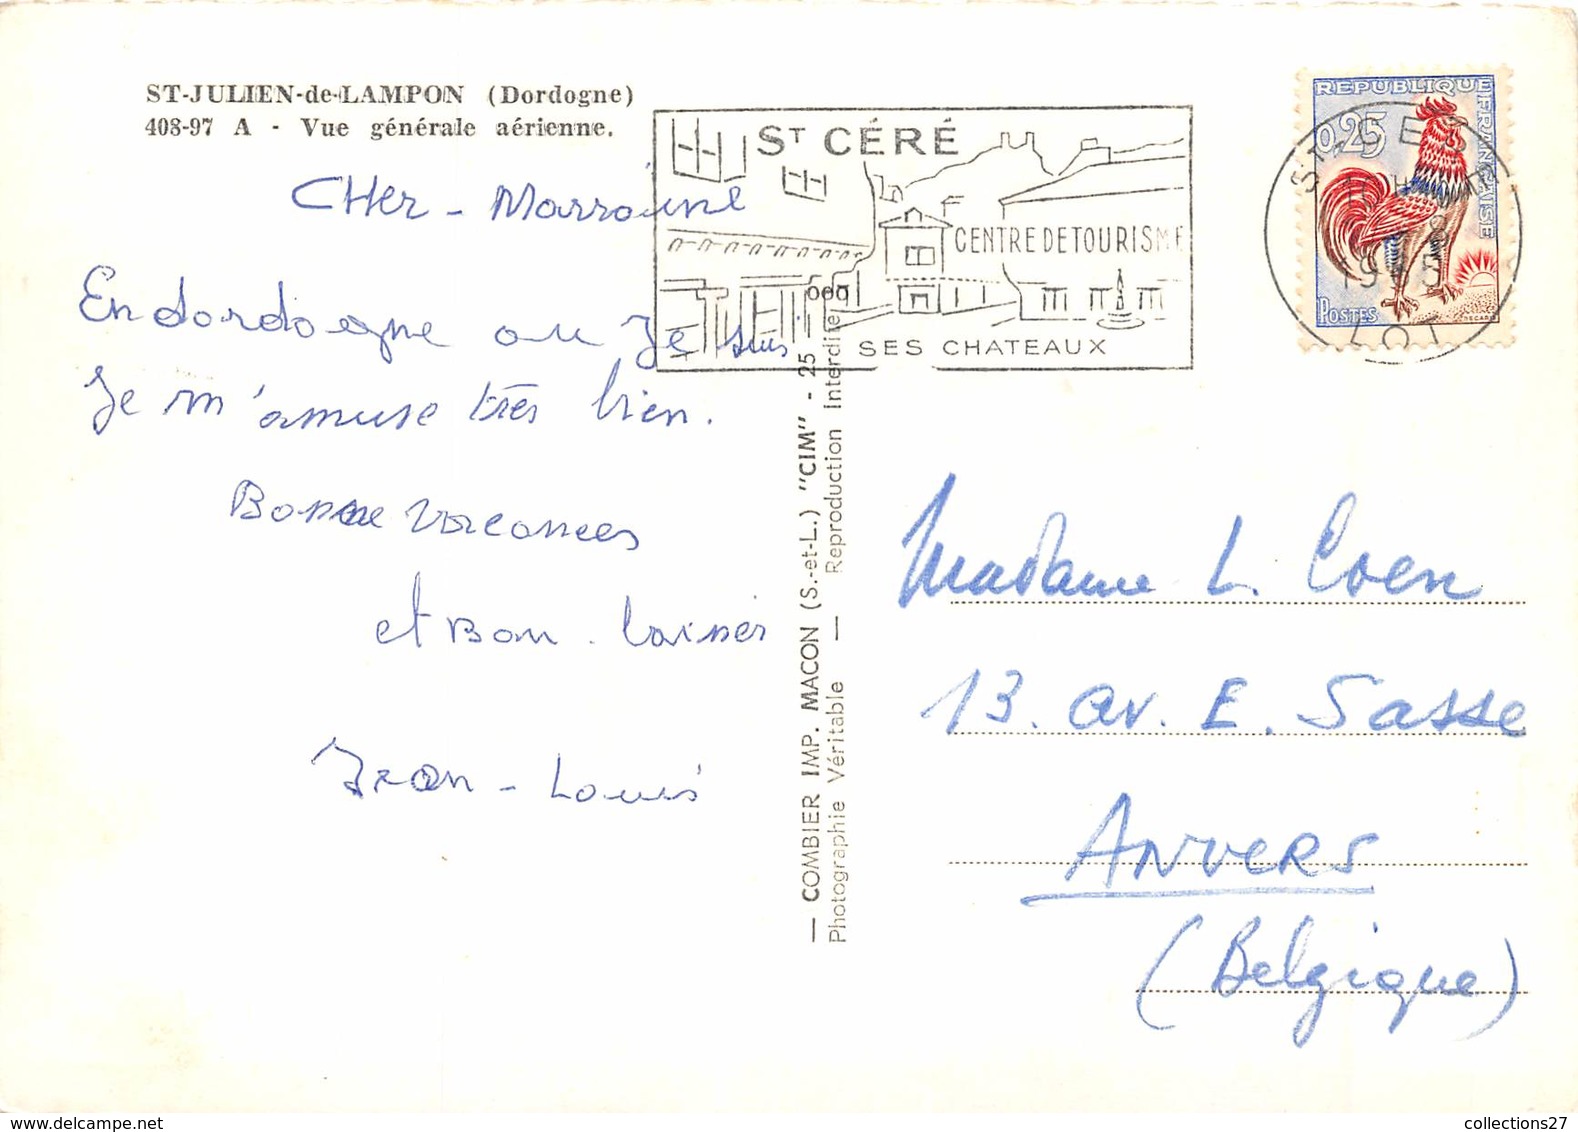 ST-JULIEN-de-LAMPON (Dordogne)
408-97 A - Vue générale aérienne.
CHer - Marraine
En dordogne ou Je suis
Je m'amuse très bien.
Bonne vacances
et Bon . baiser
Jean - Louis
ST CÉRÉ
CENTRE DE TOURISME
SES CHATEAUX
— COMBIER IMP. MACON (S.-et-L.) "CIM" - 25
Photographie Véritable — Reproduction Interdite
REPUBLIQUE FRANÇAISE
0,25
POSTES
ST-CERE
LOT
Madame L. Coen
13. av. E. Sasse
ANVERS
(Belgique)
collections27